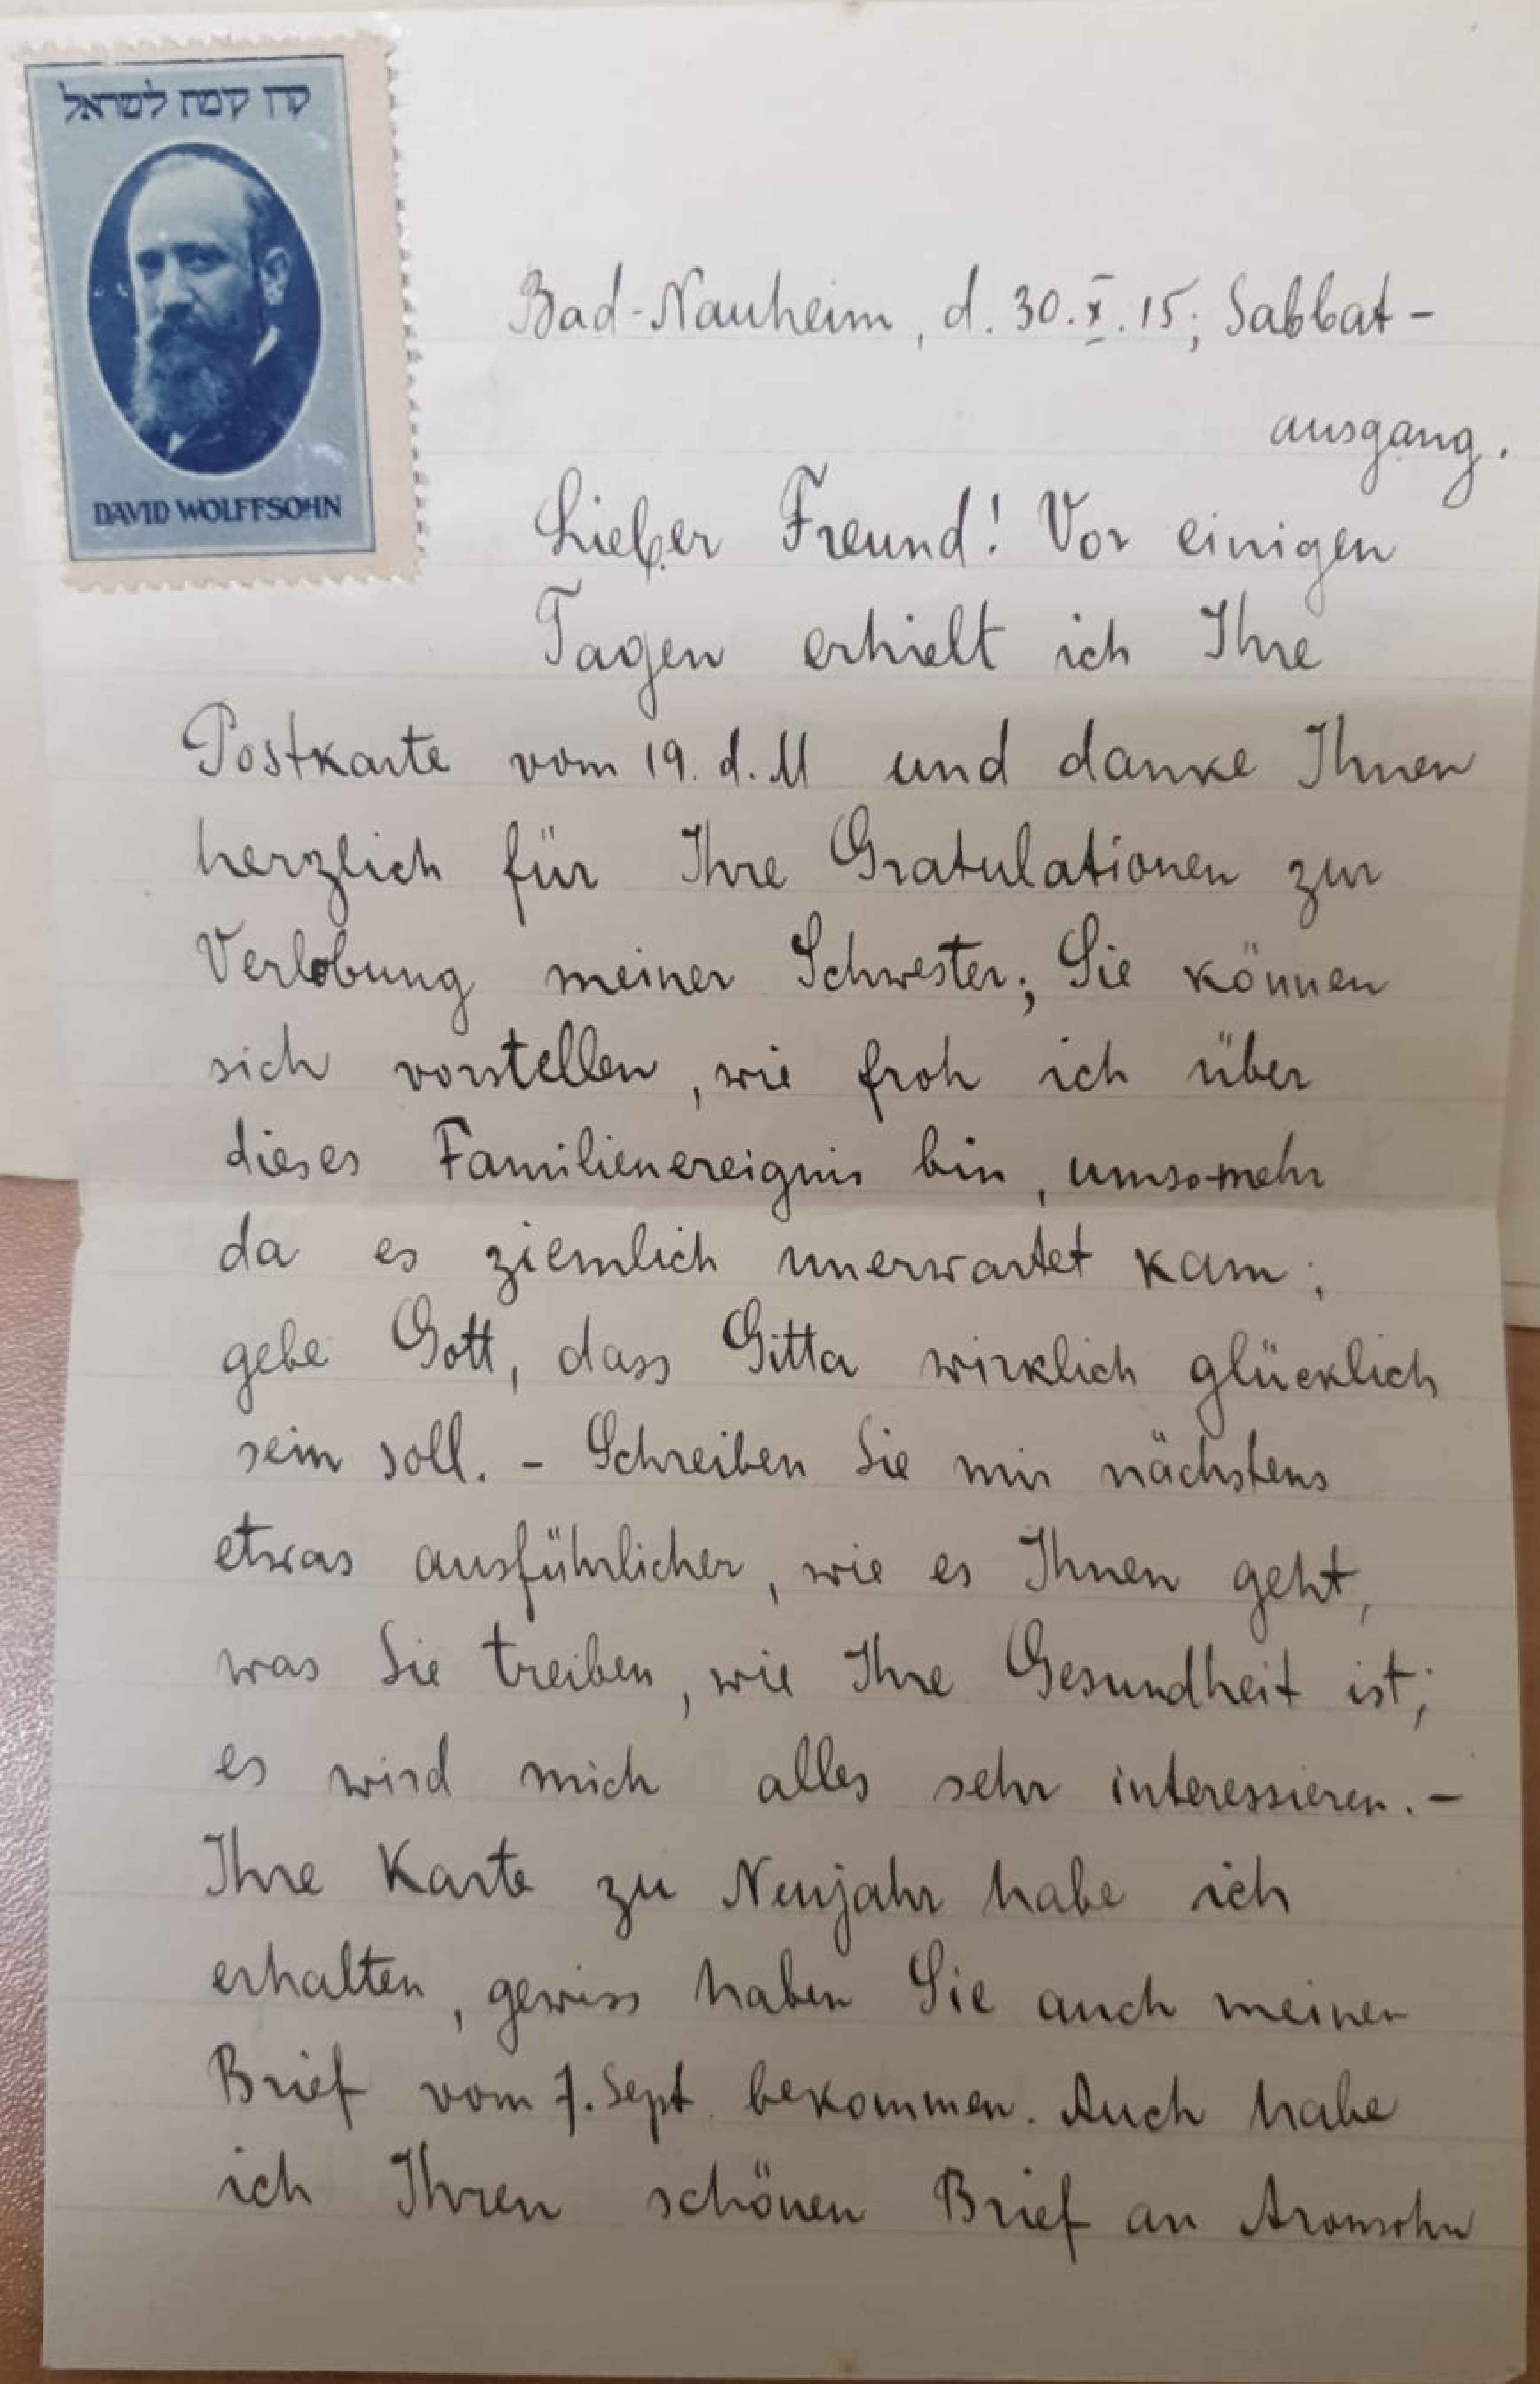 קרן קימת לישראל
DAVID WOLFFSOHN
Bad-Nauheim, d. 30.X.15; Sabbat-
ausgang.
Lieber Freund! Vor einigen
Tagen erhielt ich Ihre
Postkarte vom 19. d. M und danke Ihnen
herzlich für Ihre Gratulationen zur
Verlobung meiner Schwester; Sie können
sich vorstellen, wie froh ich über
dieses Familienereignis bin, umso-mehr
da es ziemlich unerwartet kam;
gebe Gott, dass Gitta wirklich glücklich
sein soll. - Schreiben Sie mir nächstens
etwas ausführlicher, wie es Ihnen geht,
was Sie treiben, wie Ihre Gesundheit ist;
es wird mich alles sehr interessieren. -
Ihre Karte zu Neujahr habe ich
erhalten, gewiss haben Sie auch meinen
Brief vom 7. Sept. bekommen. Auch habe
ich Ihren schönen Brief an Aronsohn